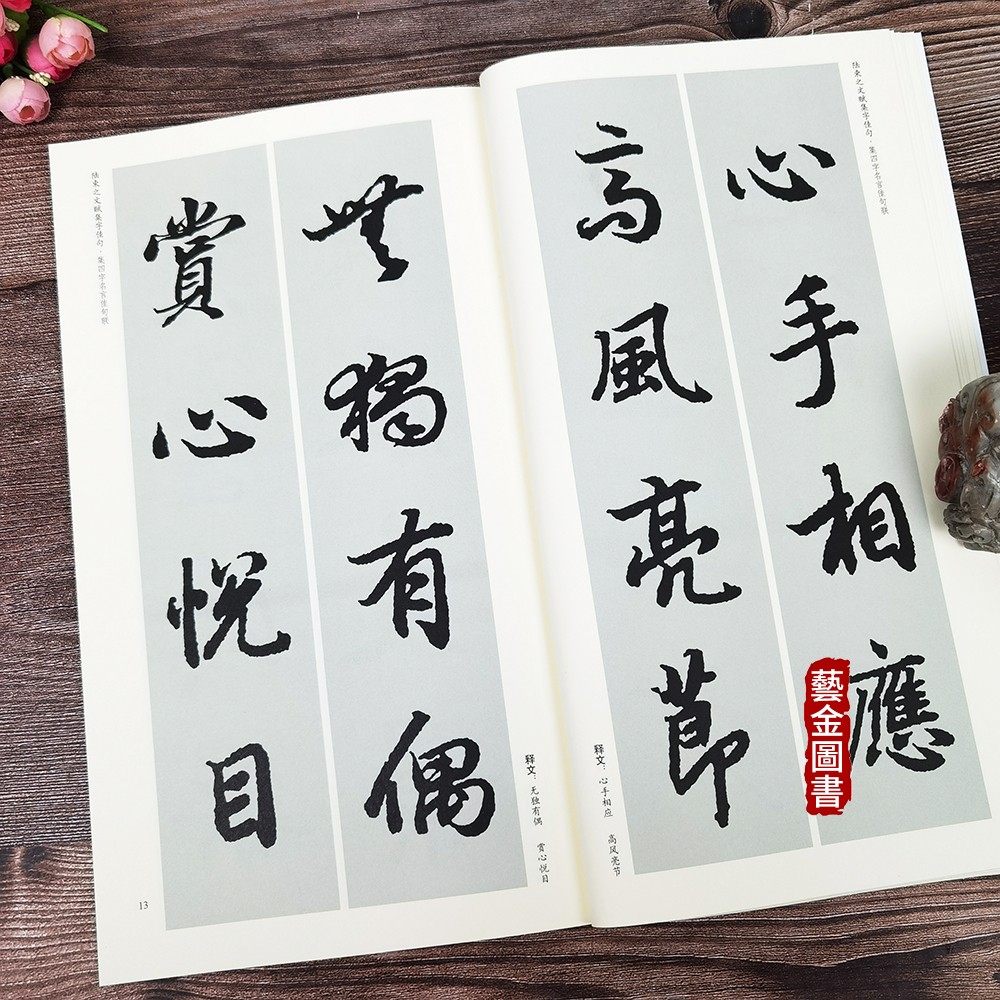 陆柬之文赋集字佳句·集四字名言佳句联
心手相應
高風亮節
释文：心手相应 高风亮节
無獨有偶
賞心悦目
释文：无独有偶 赏心悦目
陆柬之文赋集字佳句·集四字名言佳句联
13
藝金圖書